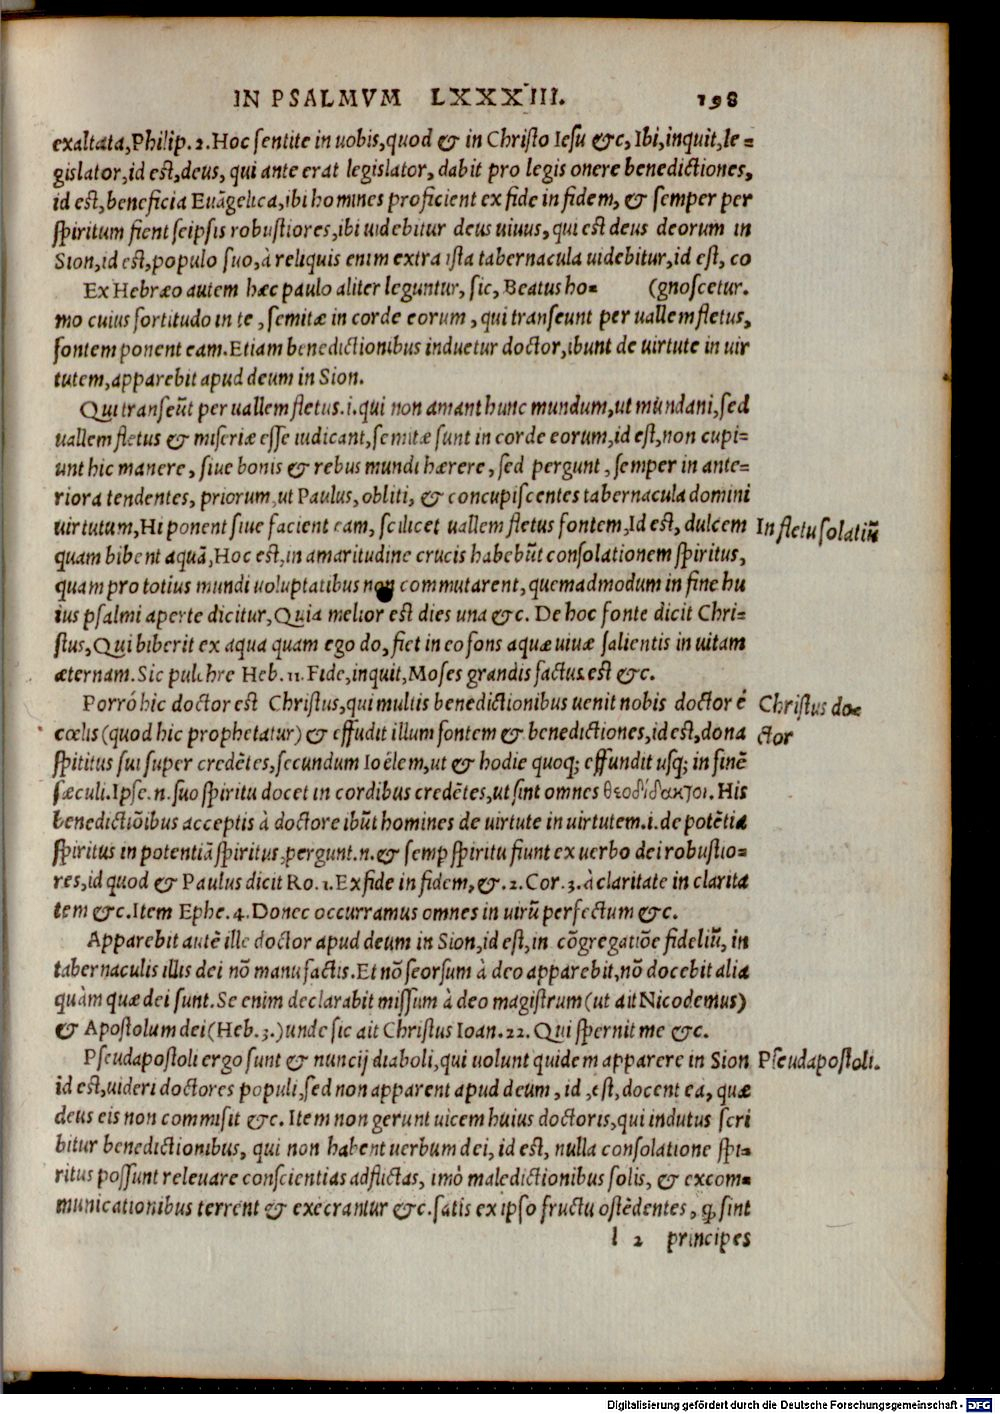 IN PSALMVM LXXXIII. 198
exaltata, Philip. 2. Hoc sentite in uobis, quod & in Christo Iesu &c, Ibi, inquit, le=
gislator, id est, deus, qui ante erat legislator, dabit pro legis onere benedictiones,
id est, beneficia Euāgelica, ibi homines proficient ex fide in fidem, & semper per
spiritum fient seipsis robustiores, ibi uidebitur deus uiuus, qui est deus deorum in
Sion, id est, populo suo, à reliquis enim extra ista tabernacula uidebitur, id est, co
Ex Hebræo autem hæc paulo aliter leguntur, sic, Beatus ho= (gnoscetur.
mo cuius fortitudo in te, semitæ in corde eorum, qui transeunt per uallem fletus,
fontem ponent eam. Etiam benedictionibus induetur doctor, ibunt de uirtute in uir
tutem, apparebit apud deum in Sion.
Qui transeūt per uallem fletus .i. qui non amant hunc mundum, ut mundani, sed
uallem fletus & miseriæ esse iudicant, semitæ sunt in corde eorum, id est, non cupi=
unt hic manere, siue bonis & rebus mundi hærere, sed pergunt, semper in ante=
riora tendentes, priorum, ut Paulus, obliti, & concupiscentes tabernacula domini
uirtutum, Hi ponent siue facient eam, scilicet uallem fletus fontem, Id est, dulcem
In fletu solatiū
quam bibent aquā, Hoc est, in amaritudine crucis habebūt consolationem spiritus,
quam pro totius mundi uoluptatibus non commutarent, quemadmodum in fine hu
ius psalmi aperte dicitur, Quia melior est dies una &c. De hoc fonte dicit Chri=
stus, Qui biberit ex aqua quam ego do, fiet in eo fons aquæ uiuæ salientis in uitam
æternam. Sic pulchre Heb. 11. Fide, inquit, Moses grandis factus est &c.
Porró hic doctor est Christus, qui multis benedictionibus uenit nobis doctor é
Christus do=
cœlis (quod hic prophetatur) & effudit illum fontem & benedictiones, id est, dona
ctor
spititus sui super credētes, secundum Ioélem, ut & hodie quoq; effundit usq; in finē
sæculi. Ipse .n. suo spiritu docet in cordibus credētes, ut sint omnes θεοδίδακτοι. His
benedictiōibus acceptis à doctore ibūt homines de uirtute in uirtutem .i. de potētia
spiritus in potentiā spiritus, pergunt .n. & semp spiritu fiunt ex uerbo dei robustio=
res, id quod & Paulus dicit Ro. 1. Ex fide in fidem, &. 2. Cor. 3. à claritate in clarita
tem &c. Item Ephe. 4. Donec occurramus omnes in uirū perfectum &c.
Apparebit autē ille doctor apud deum in Sion, id est, in cōgregatiōe fideliū, in
tabernaculis illis dei nō manu factis. Et nō seorsum à deo apparebit, nō docebit alia
quàm quæ dei sunt. Se enim declarabit missum à deo magistrum (ut ait Nicodemus)
& Apostolum dei (Heb. 3.) unde sic ait Christus Ioan. 22. Qui spernit me &c.
Pseudapostoli ergo sunt & nuncij diaboli, qui uolunt quidem apparere in Sion
Pseudapostoli.
id est, uideri doctores populi, sed non apparent apud deum, id, est, docent ea, quæ
deus eis non commisit &c. Item non gerunt uicem huius doctoris, qui indutus scri
bitur benedictionibus, qui non habent uerbum dei, id est, nulla consolatione spi=
ritus possunt releuare conscientias adflictas, imò maledictionibus solis, & excom=
municationibus terrent & execrantur &c. satis ex ipso fructu ostēdentes, ꝙ sint
l 2 principes
Digitalisierung gefördert durch die Deutsche Forschungsgemeinschaft - DFG